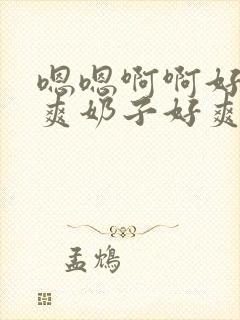 嗯嗯啊啊好
爽奶子好爽
孟鸩